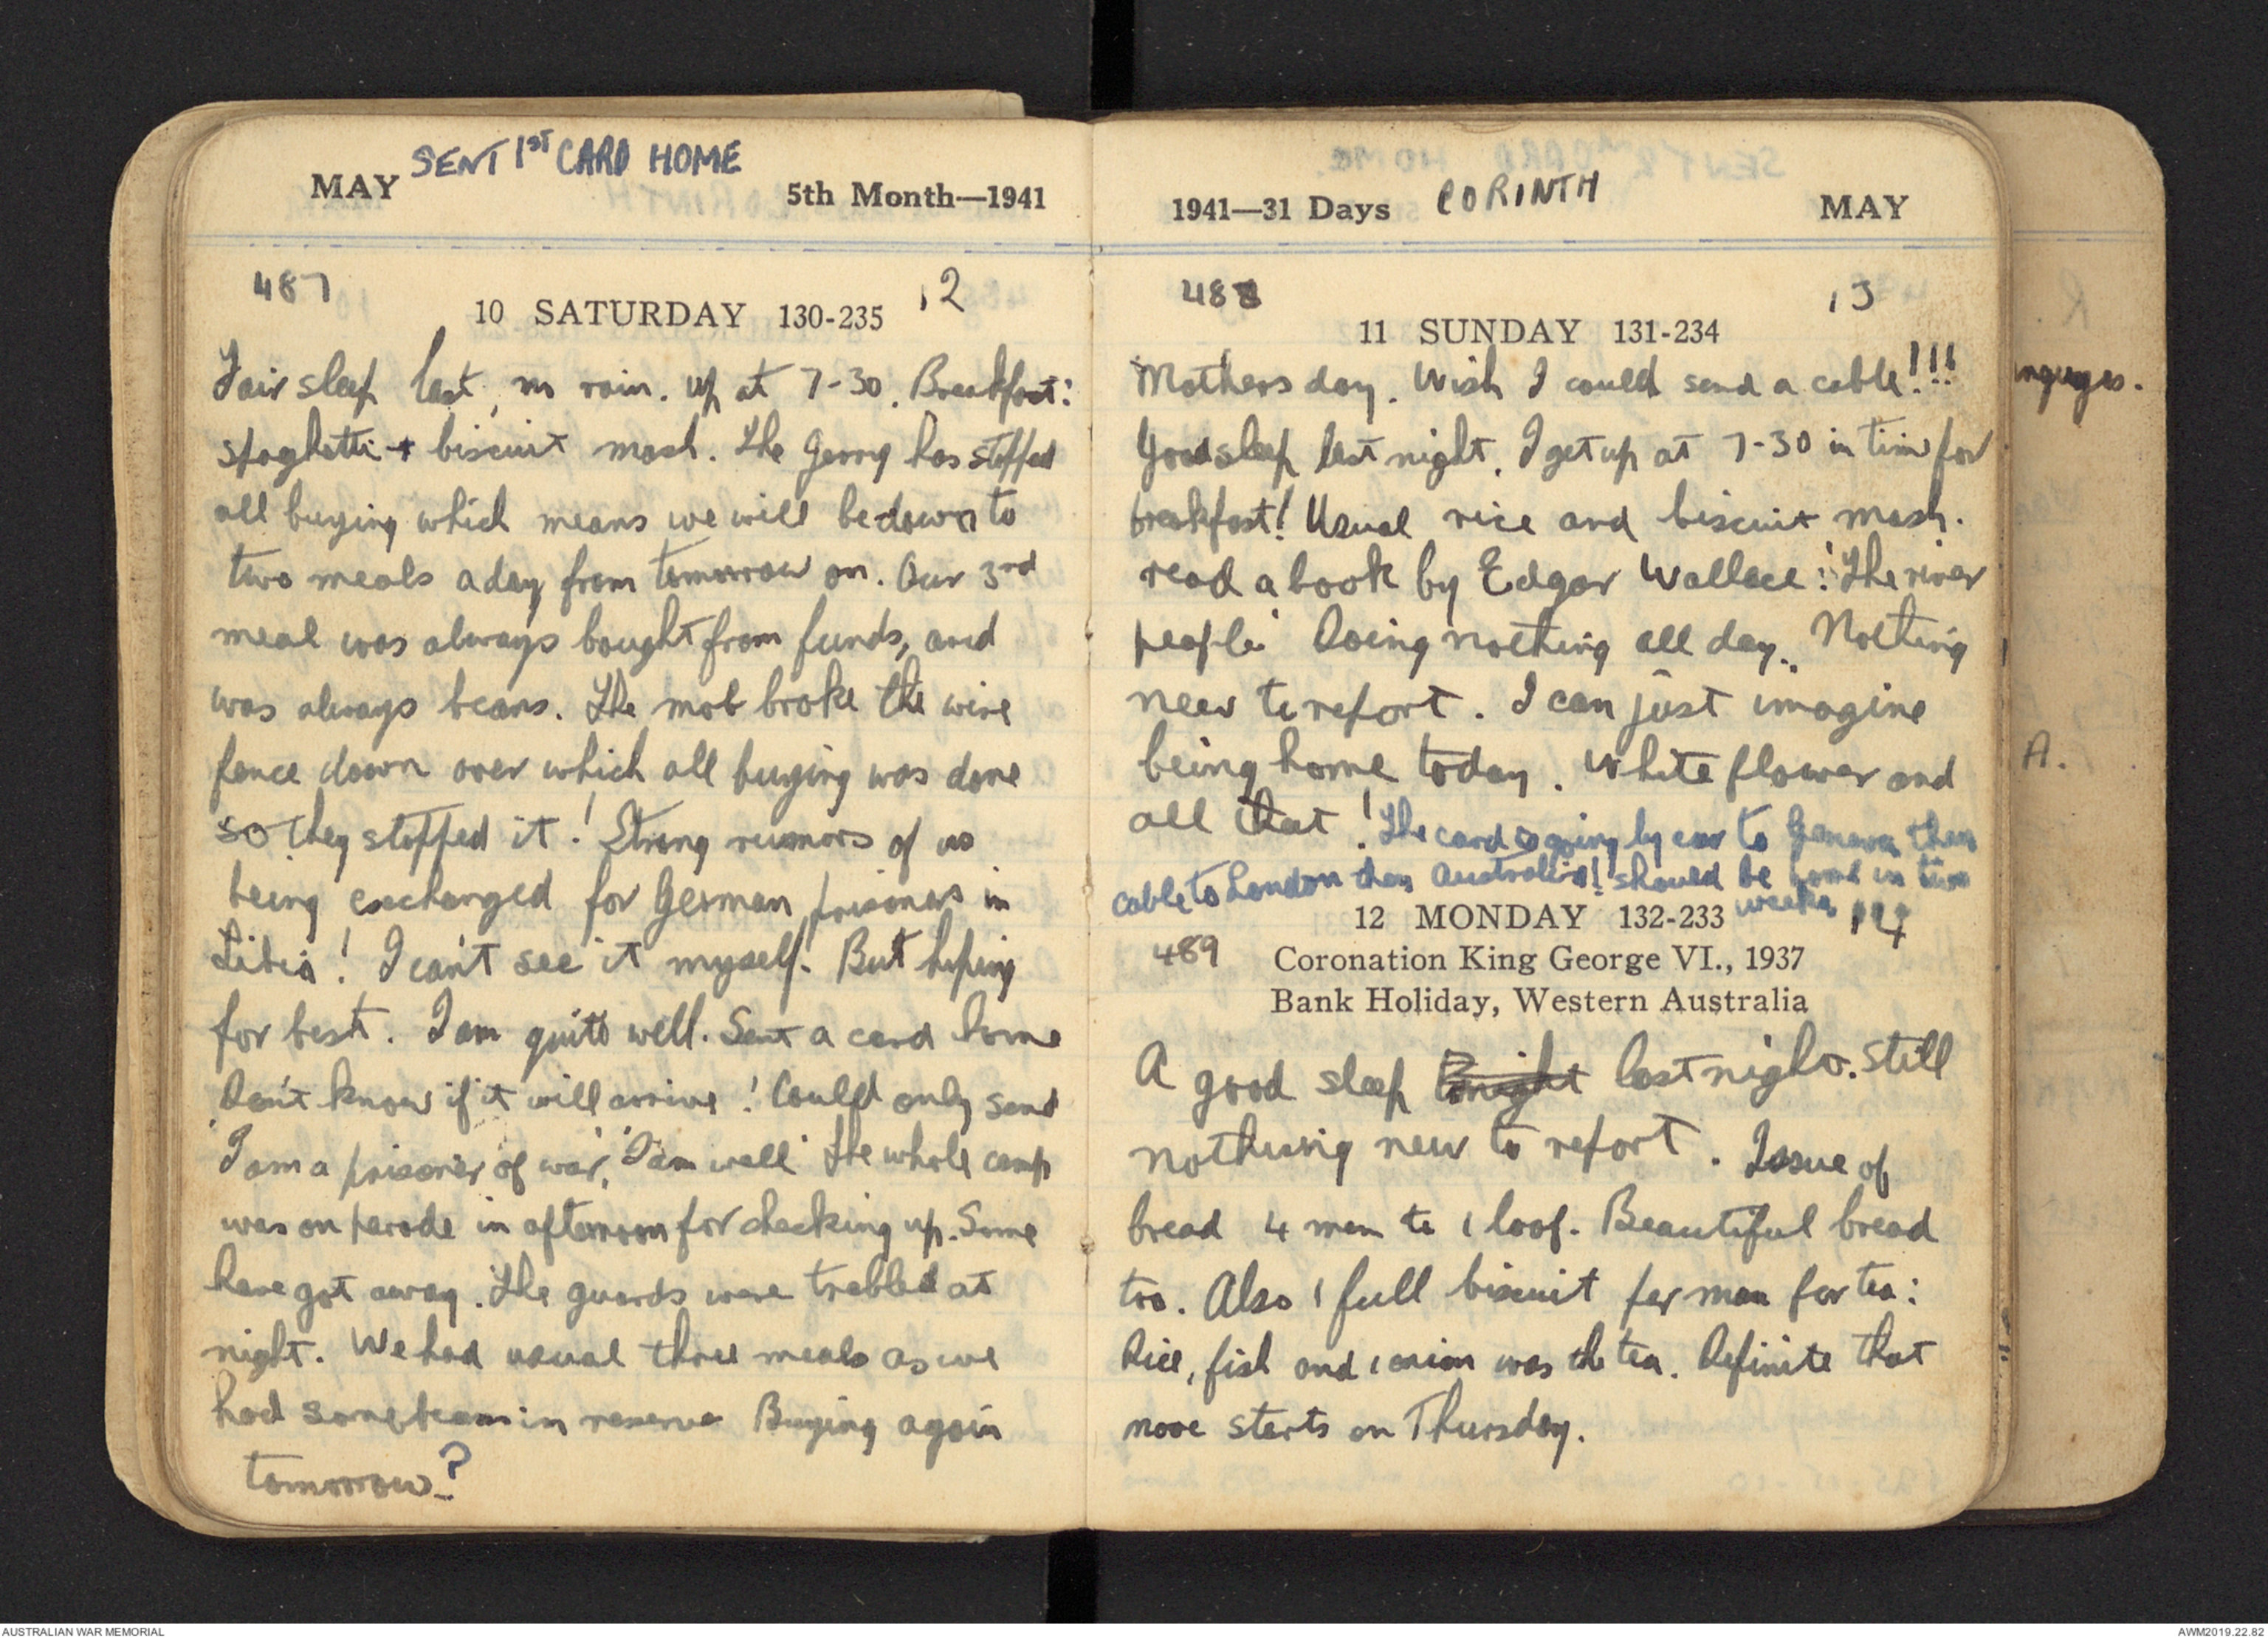 MAY SENT 1st CARD HOME 5th Month—1941
487 12
10 SATURDAY 130-235
Fair sleep last, no rain. up at 7-30. Breakfast:
spaghetti + biscuit mash. The Gerry has stopped
all buying which means we will be down to
two meals a day from tomorrow on. Our 3rd
meal was always bought from funds, and
was always beans. The mob broke the wire
fence down over which all buying was done
so they stopped it! Strong rumors of us
being exchanged for German prisoners in
Libia! I can't see it myself. But hoping
for best. I am quite well. Sent a card home
Don't know if it will arrive! Could only send
'I am a prisoner of war', 'I am well' The whole camp
was on parade in afternoon for checking up. Some
have got away. The guards were trebled at
night. We had usual three meals as we
had some beans in reserve Buying again
tomorrow?
1941—31 Days CORINTH MAY
488 13
11 SUNDAY 131-234
Mothers day. Wish I could send a cable!!!
Good sleep last night. I get up at 7-30 in time for
breakfast! Usual rice and biscuit mash.
read a book by Edgar Wallace: 'The river
people' Doing nothing all day. Nothing
new to report. I can just imagine
being home today. White flower and
all that! The card is going by car to Geneva then
cable to London then Australia! should be home in two
weeks
12 MONDAY 132-233 14
489 Coronation King George VI., 1937
Bank Holiday, Western Australia
A good sleep tonight last night. Still
nothing new to report. Issue of
bread 4 men to 1 loaf. Beautiful bread
too. Also 1 full biscuit per man for tea:
Rice, fish and 1 onion was the tea. Definite that
move starts on Thursday.
A.
AUSTRALIAN WAR MEMORIAL AWM2019.22.82